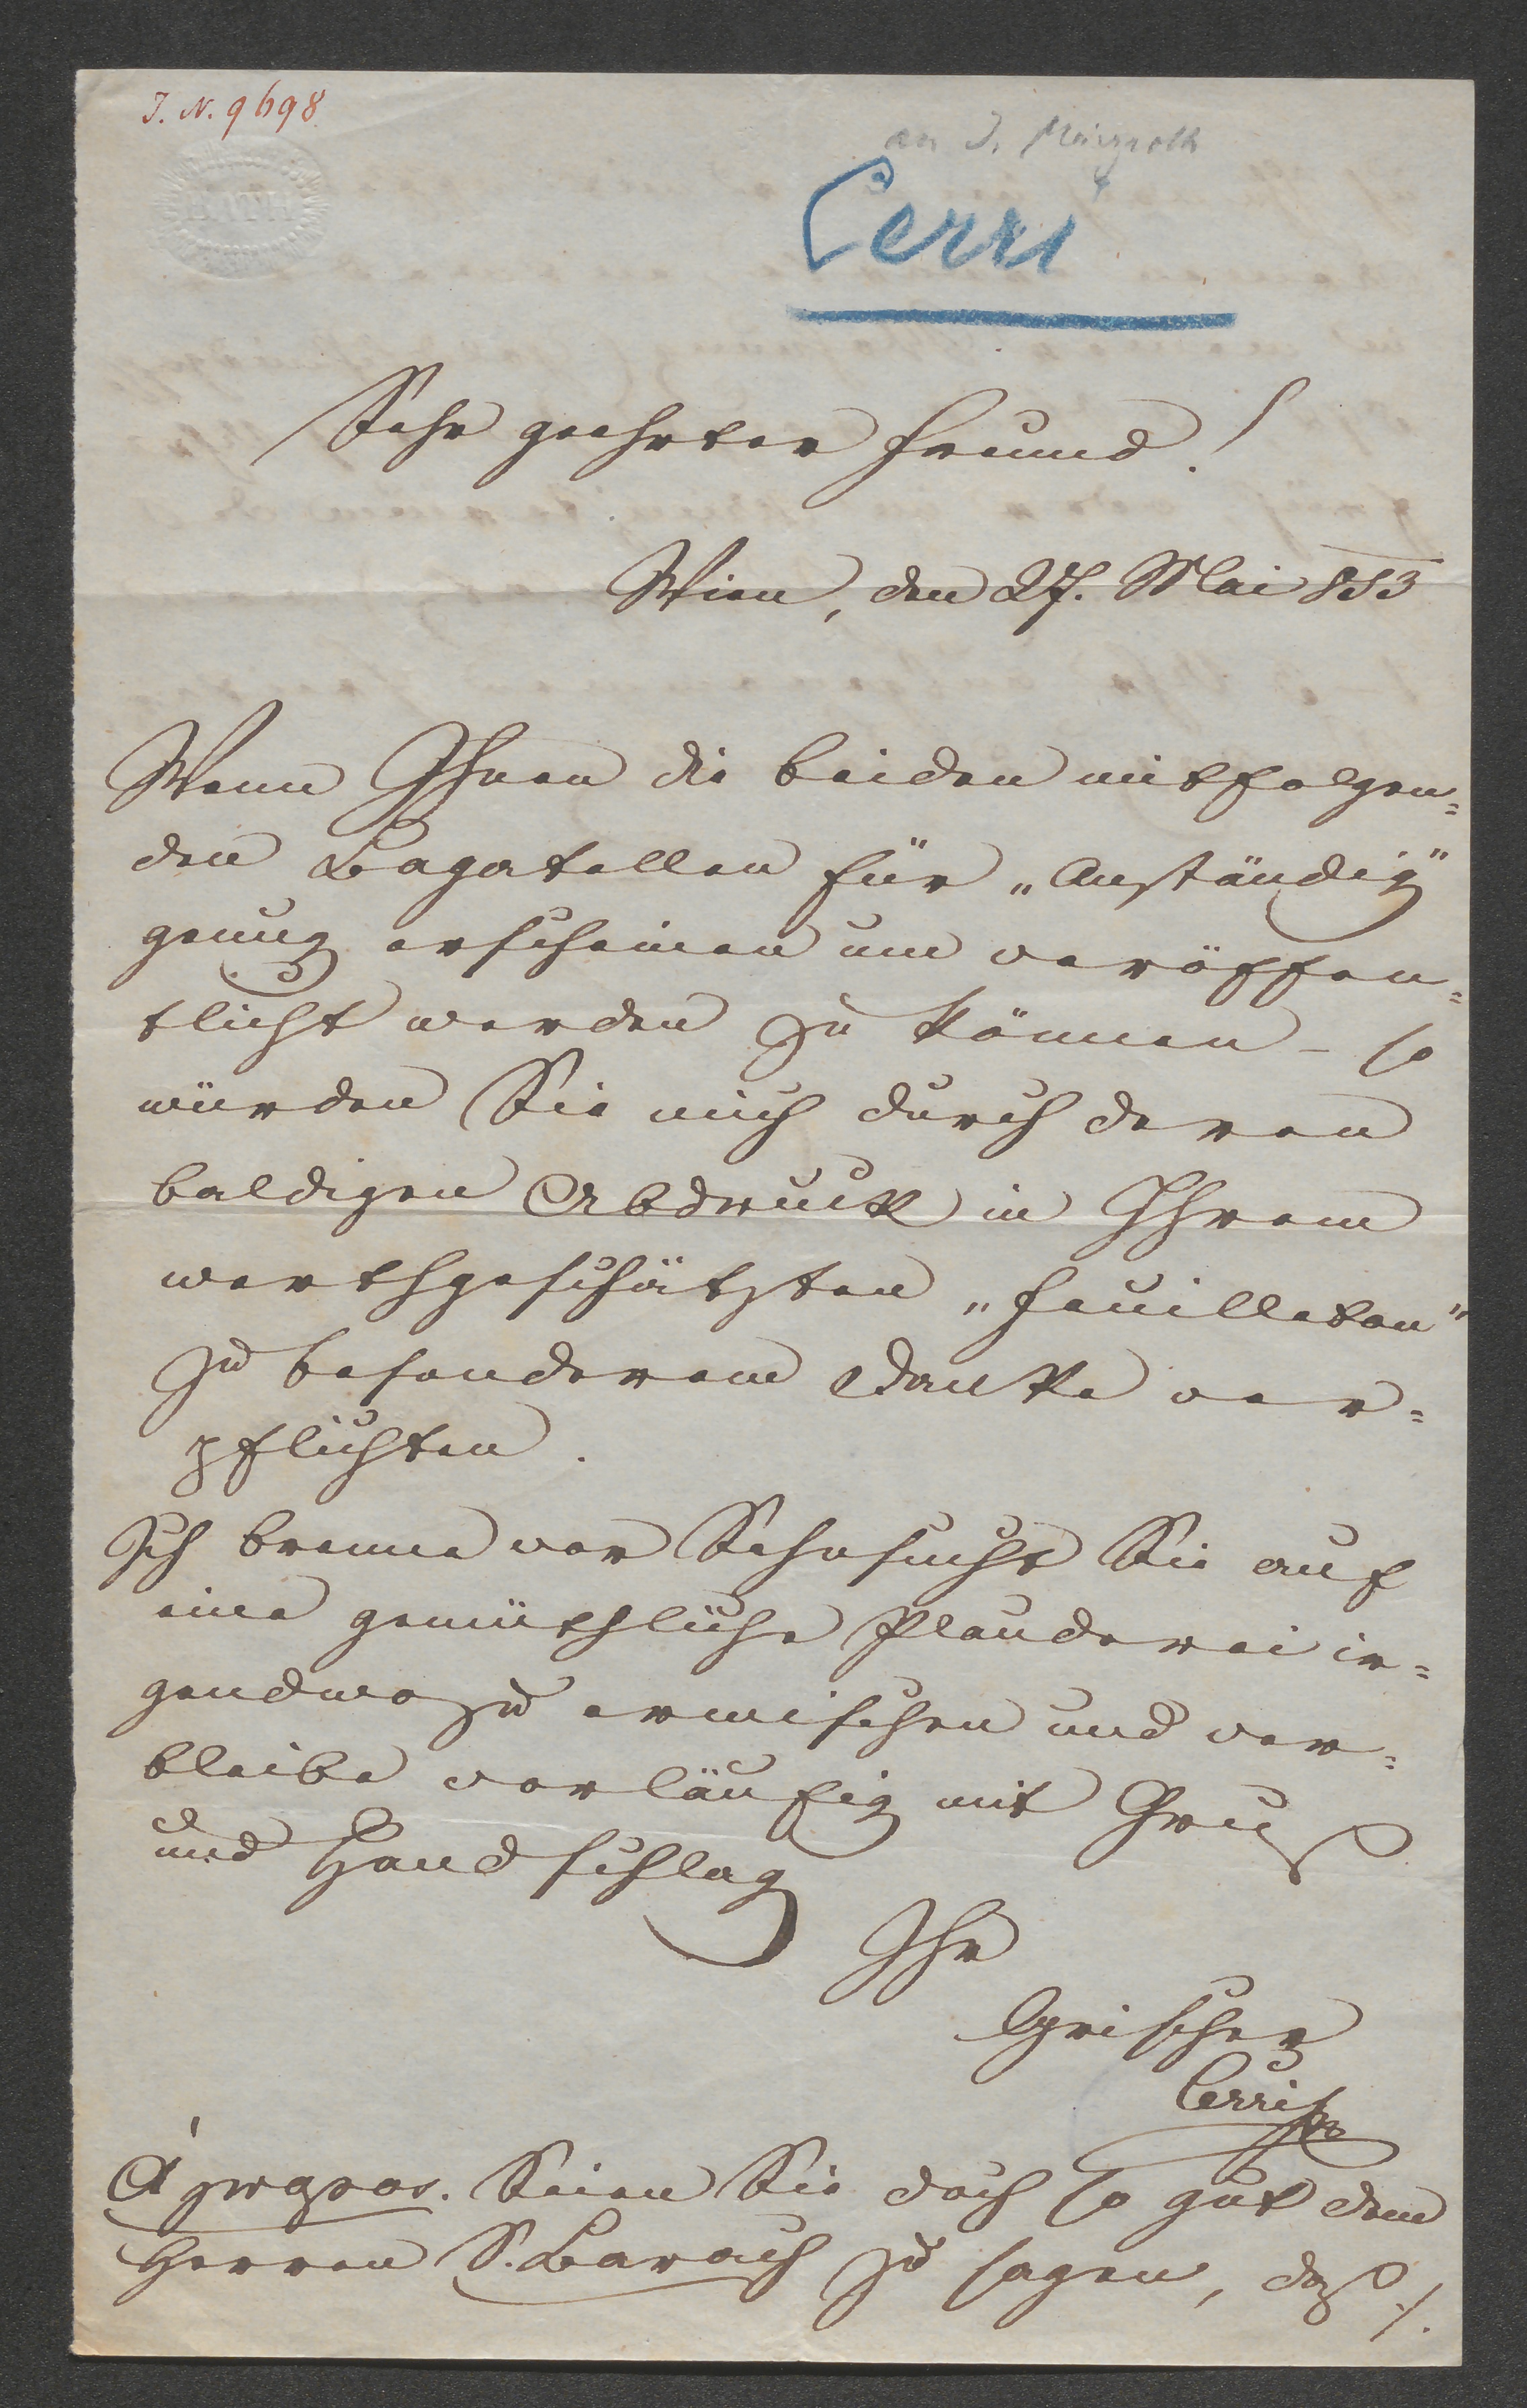 J. N. 9698
BATH
an J. Märzroth
Cerri
Sehr geehrter Freund!
Wien, den 27. Mai 853
Wenn Ihnen die beiden mitfolgen=
den Bagatellen für „Anständig"
genug erscheinen um veröffen=
tlicht werden zu können – so
würden Sie mich durch deren
baldigen Abdruck in Ihrem
werthgeschätzten „Feuilleton"
zu besonderem Danke ver=
pflichten.
Ich brenne vor Sehnsucht Sie auf
eine gemüthliche Plauderei ir=
gendwo zu erwischen und ver=
bleibe vorläufig mit Gruß
und Handschlag
Ihr
Cerri
Apropos. Seien Sie doch so gut dem
Herren S. Barach zu sagen, daß ./.